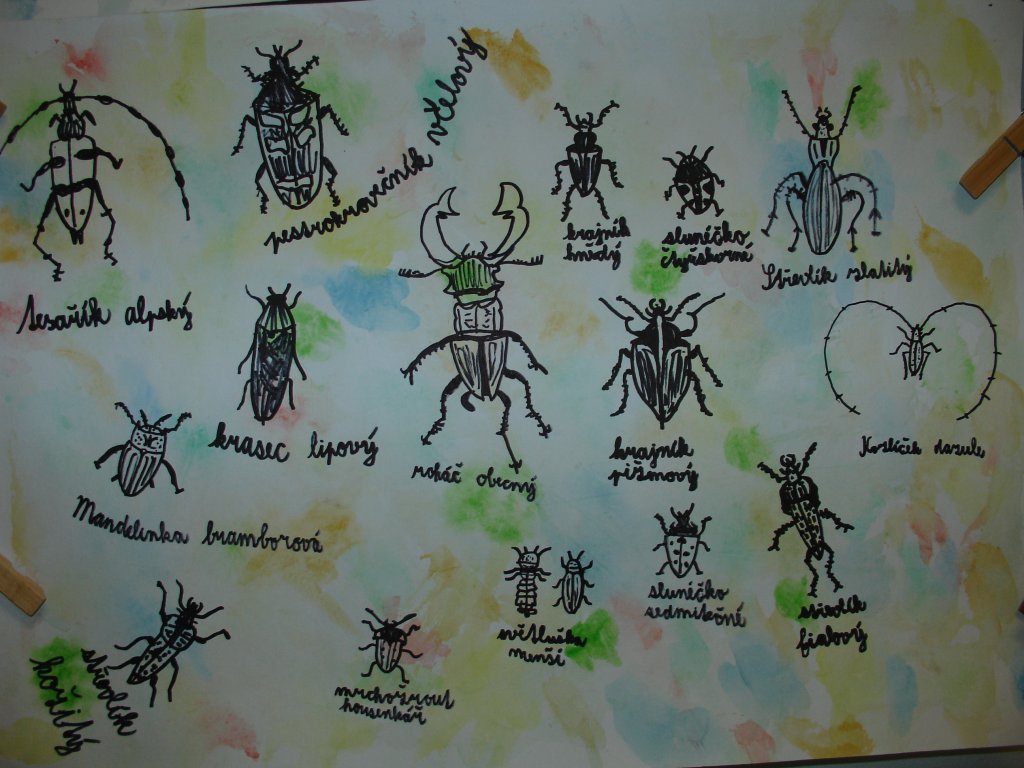 pestrokrovečník včelový
krajník
hnědý
slunéčko
čtyřskvrné
Střevlík zlatitý
tesařík alpský
krasec lipový
roháč obecný
krajník
pižmový
Kozlíček dazule
Mandelinka bramborová
slunéčko
sedmitečné
střevlík
fialový
světluška
menší
střevlík
kožitý
mrchožrout
housenkář